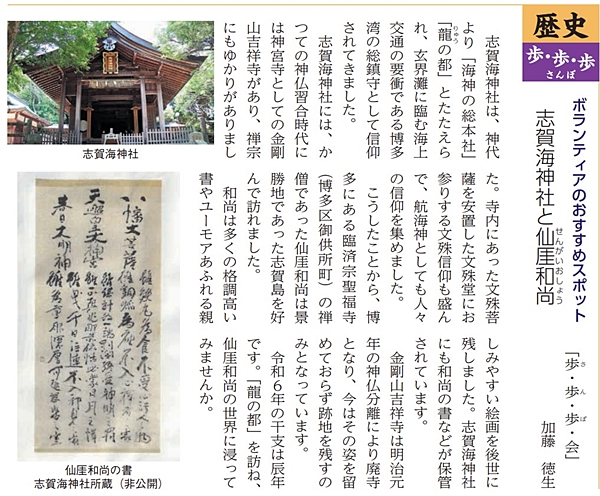 歴史
歩・歩・歩
さんぽ
ボランティアのおすすめスポット
志賀海神社と仙厓和尚
せんがいおしょう
「歩・歩・歩・会」
さんぽ
加藤 徳生
志賀海神社は、神代
より「海神の総本社」
「龍の都」とたたえら
りゅう
れ、玄界灘に臨む海上
交通の要衝である博多
湾の総鎮守として信仰
されてきました。
志賀海神社には、か
つての神仏習合時代に
は神宮寺としての金剛
山吉祥寺があり、禅宗
にもゆかりがありまし
た。寺内にあった文殊菩
薩を安置した文殊堂にお
参りする文殊信仰も盛ん
で、航海神としても人々
の信仰を集めました。
こうしたことから、博
多にある臨済宗聖福寺
(博多区御供所町)の禅
僧であった仙厓和尚は景
勝地であった志賀島を好
んで訪れました。
和尚は多くの格調高い
書やユーモアあふれる親
しみやすい絵画を後世に
残しました。志賀海神社
にも和尚の書などが保管
されています。
金剛山吉祥寺は明治元
年の神仏分離により廃寺
となり、今はその姿を留
めておらず跡地を残すの
みとなっています。
令和6年の干支は辰年
です。「龍の都」を訪ね、
仙厓和尚の世界に浸って
みませんか。
志賀海神社
八幡大菩薩
天照皇大神宮
春日大明神
仙厓和尚の書
志賀海神社所蔵(非公開)